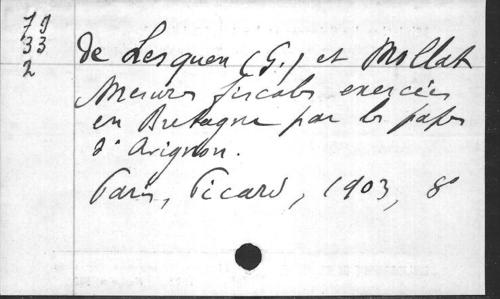 79
33
2
de Lesquen (G.) et Mollat
Mesures fiscales exercées
en Bretagne par les papes
d'Avignon.
Paris, Picard, 1903, 8°